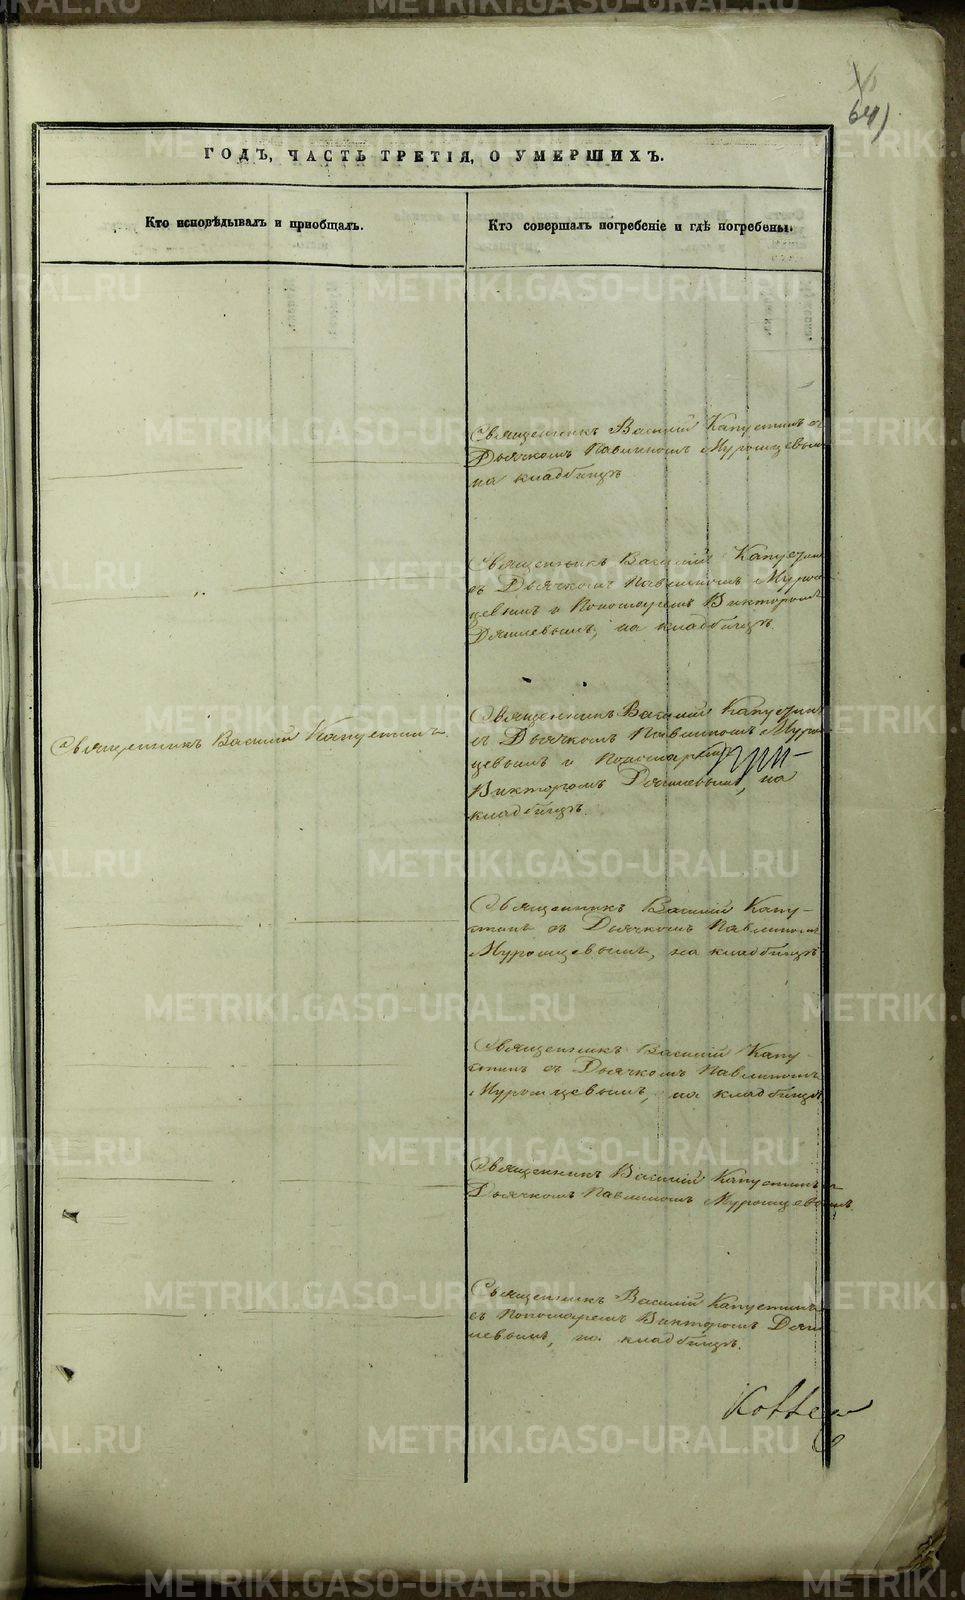 64)
ГОДЪ, ЧАСТЬ ТРЕТІЯ, О УМЕРШИХЪ.
Кто исповѣдывалъ и пріобщалъ.
Кто совершалъ погребеніе и гдѣ погребены.
Священникъ Василій Капустинъ съ
Дьячкомъ Павлиномъ Муромцевымъ
на кладбищѣ
Священникъ Василій Капустинъ
съ Дьячкомъ Павлиномъ Муром-
цевымъ и Пономаремъ Викторомъ
на кладбищѣ.
Священникъ Василій Капустинъ.
Священникъ Василій Капустинъ
съ Дьячкомъ Павлиномъ Муром-
цевымъ и Пономаремъ
Викторомъ на
кладбищѣ.
Священникъ Василій Капу-
стинъ съ Дьячкомъ Павлиномъ
Муромцевымъ, на кладбищѣ
Священникъ Василій Капу-
стинъ съ Дьячкомъ Павлиномъ
Муромцевымъ, на кладбищѣ
Священникъ Василій Капустинъ съ
Дьячкомъ Павлиномъ Муромцевымъ.
Священникъ Василій Капустинъ
съ Пономаремъ Викторомъ
на кладбищѣ.
METRIKI.GASO-URAL.RU